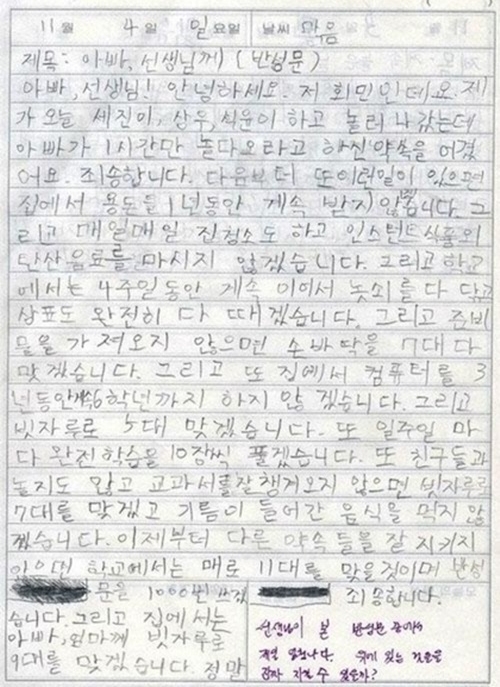 11월 4일 일요일 날씨 맑음
제목: 아빠, 선생님께 (반성문)
아빠, 선생님! 안녕하세요. 저 회민인데요. 제
가 오늘 세진이, 상운, 식운이 하고 놀러 나갔는데
아빠가 1시간만 놀다오라고 하신 약속을 어겼
어요. 죄송합니다. 다음부터 또 이런일이 있으면
집에서 용돈을 1년동안 계속 받지 않겠습니다. 그
리고 매일매일 집청소도 하고 인스턴트식품와
탄산음료를 마시지 않겠습니다. 그리고 학교
에서는 4주일동안 계속 이어서 놋쇠를 다 닦고
상표도 완전히 다 때겠습니다. 그리고 준비
물을 가져오지 않으면 손바닥을 7대 다
맞겠습니다. 그리고 또 집에서 컴퓨터를 3
년동안 6학년까지 하지 않겠습니다. 그리고
빗자루로 5대 맞겠습니다. 또 일주일 마
다 완전학습을 10장씩 풀겠습니다. 또 친구들과
놀지도 않고 교과서를 잘 챙겨오지 않으면 빗자루로
7대를 맞겠고 기름이 들어간 음식을 먹지 않
겠습니다. 이제부터 다른 약속들을 잘 지키지
않으면 학교에서는 매로 11대를 맞을것이며 반성
문을 1000번 쓰겠
습니다. 그리고 집에서는
아빠, 엄마께 빗자루로
9대를 맞겠습니다. 정말
죄송합니다.
선생님이 본 반성문 중에
제일 위에 있는 것들을
과연 지킬 수 있을까?